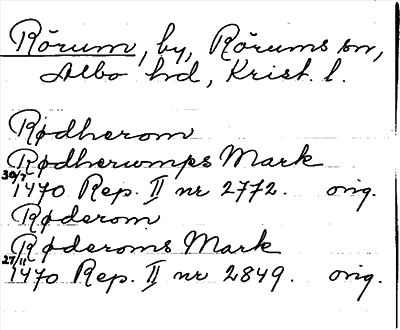 Rörum, by, Rörums sn,
Albo hd, Krist. l.
Rødherom
Rødherumps Mark
30/7 1470 Rep. II nr 2772. orig.
Røderom
Røderoms Mark
27/11 1470 Rep. II nr 2849. orig.